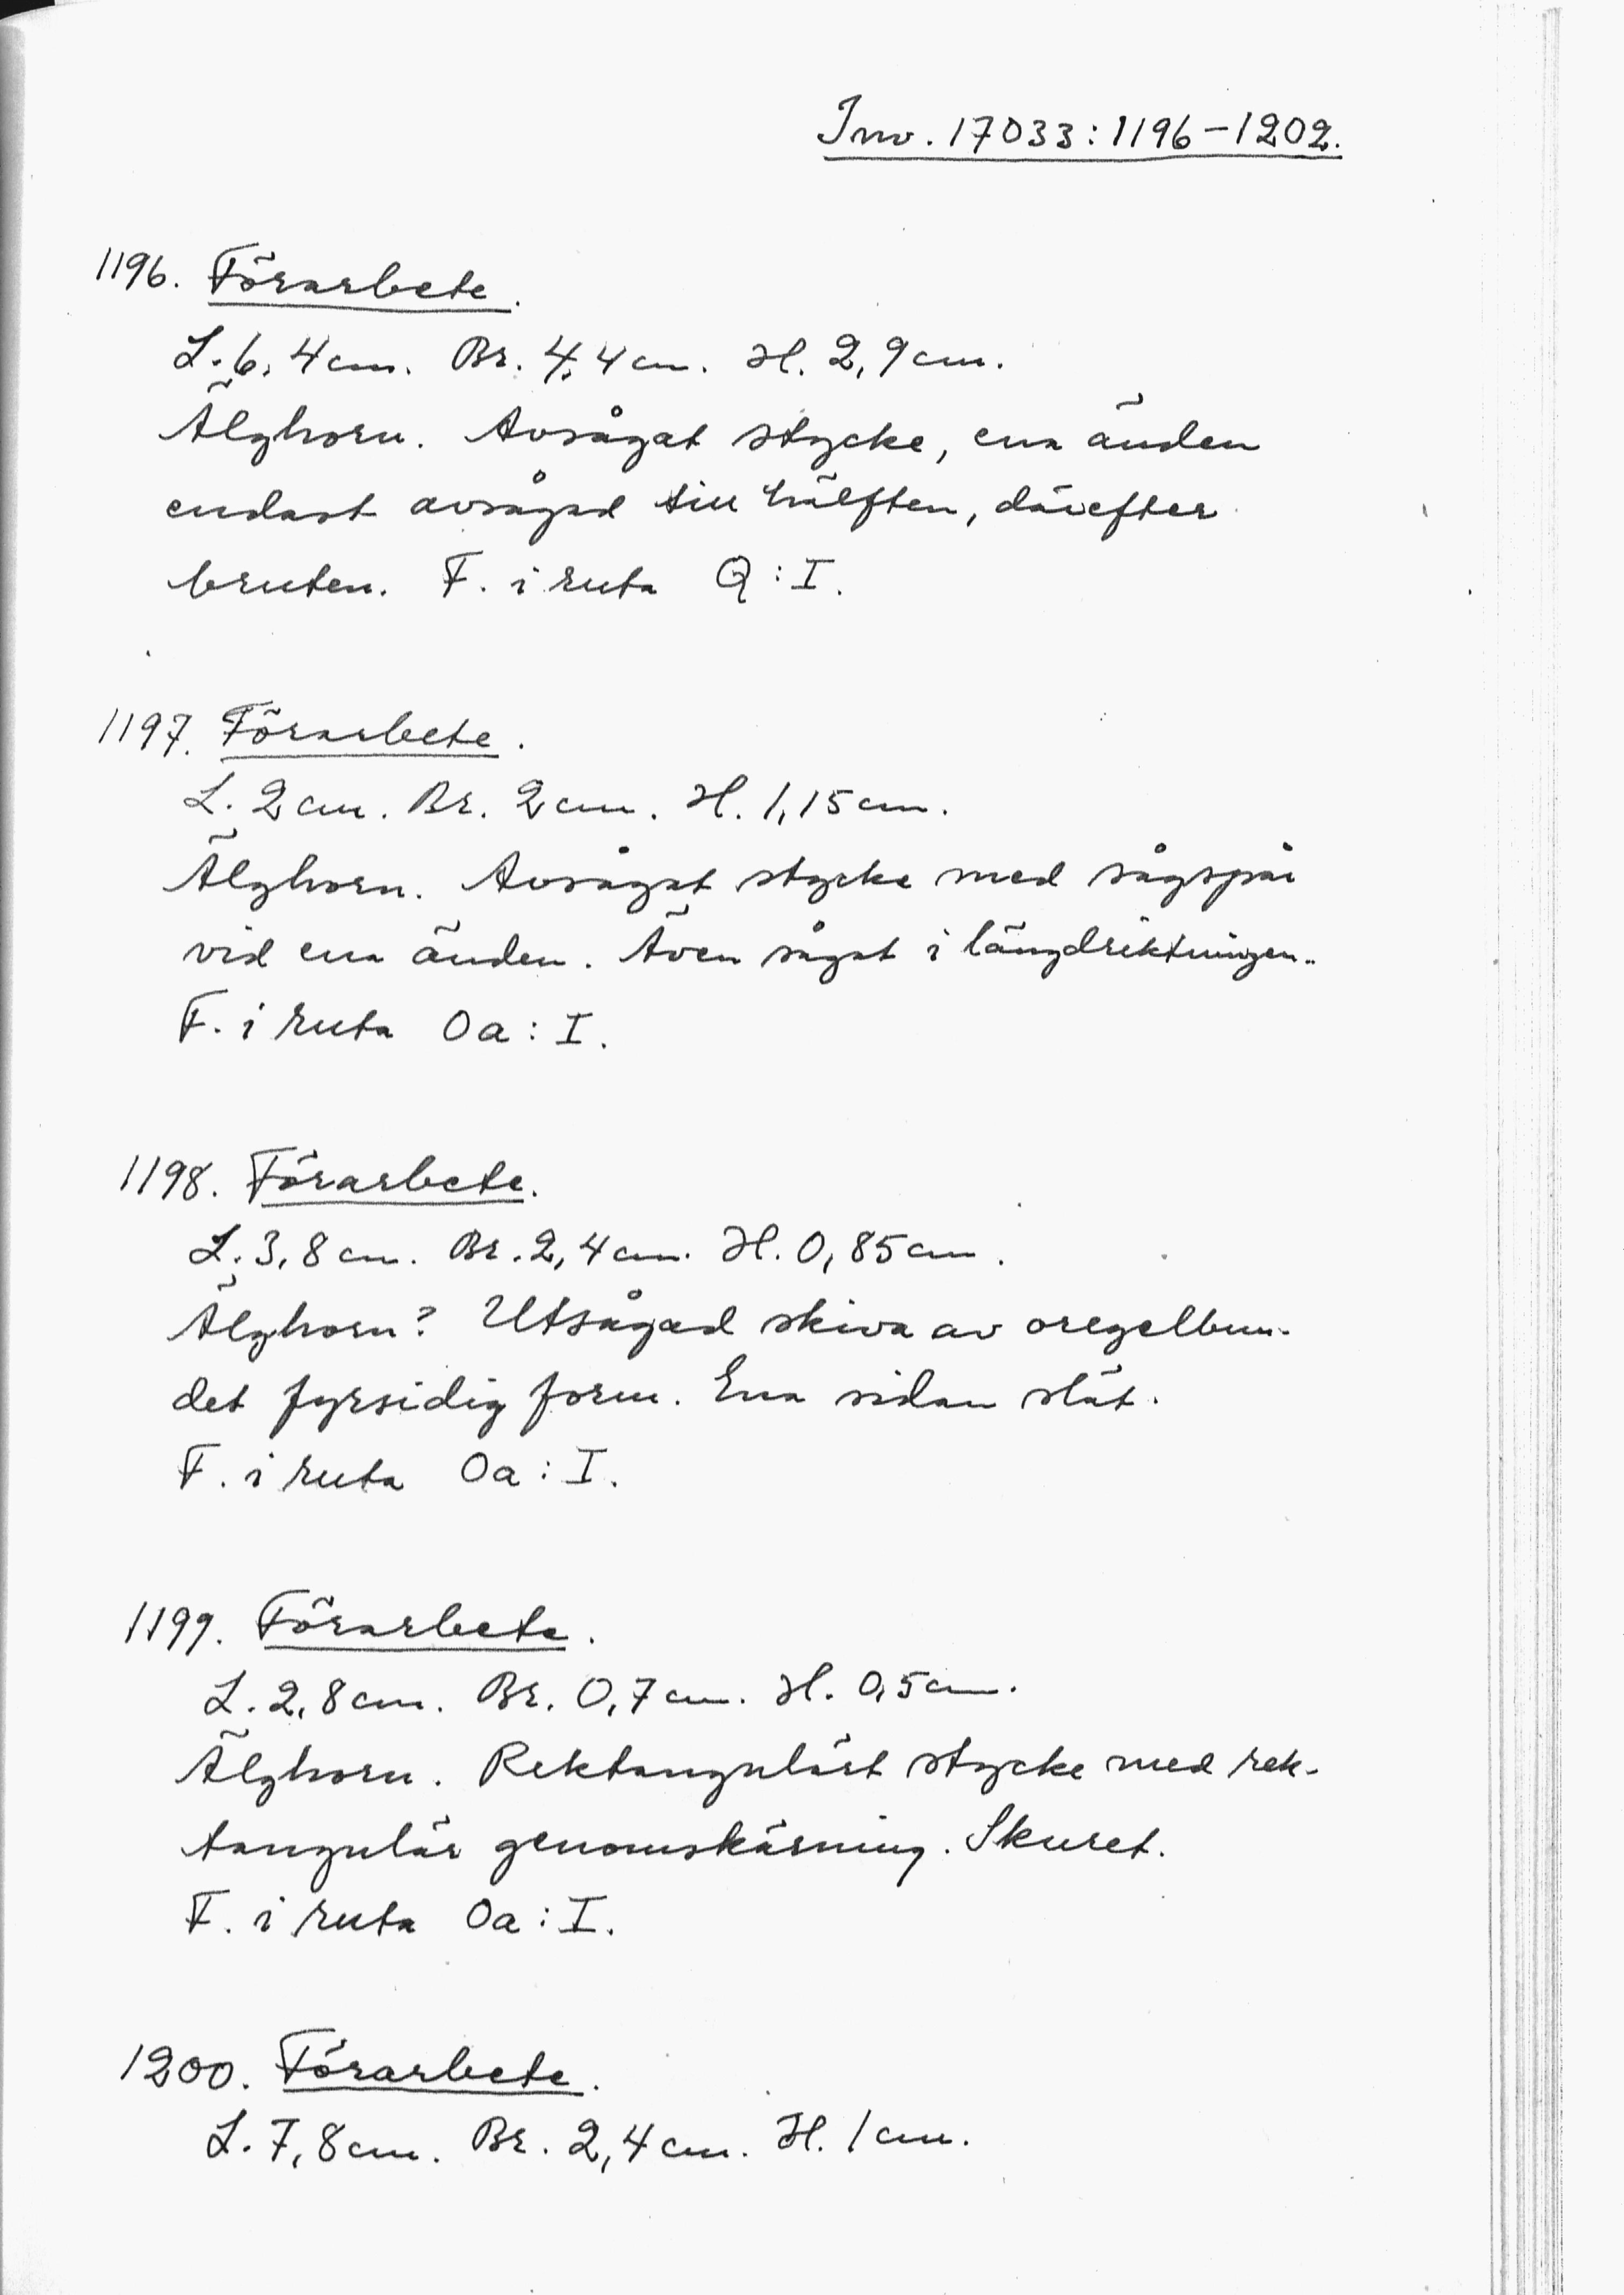 Inv. 17033:1196-1202.
1196. Förarbete.
L. 6,4 cm. Br. 4,4 cm. H. 2,9 cm.
Älghorn. Avsågat stycke, ena änden
endast avsågad till hälften, därefter
bruten. F. i ruta Q:I.
1197. Förarbete.
L. 2 cm. Br. 2 cm. H. 1,15 cm.
Älghorn. Avsågat stycke med sågspår
vid ena änden. Även sågat i längdriktningen.
F. i ruta Oa:I.
1198. Förarbete.
L. 3,8 cm. Br. 2,4 cm. H. 0,85 cm.
Älghorn? Utsågad skiva av oregelbun-
det fyrsidig form. Ena sidan slät.
F. i ruta Oa:I.
1199. Förarbete.
L. 2,8 cm. Br. 0,7 cm. H. 0,5 cm.
Älghorn. Rektangulärt stycke med rek-
tangulär genomskärning. Skuret.
F. i ruta Oa:I.
1200. Förarbete.
L. 7,8 cm. Br. 2,4 cm. H. 1 cm.